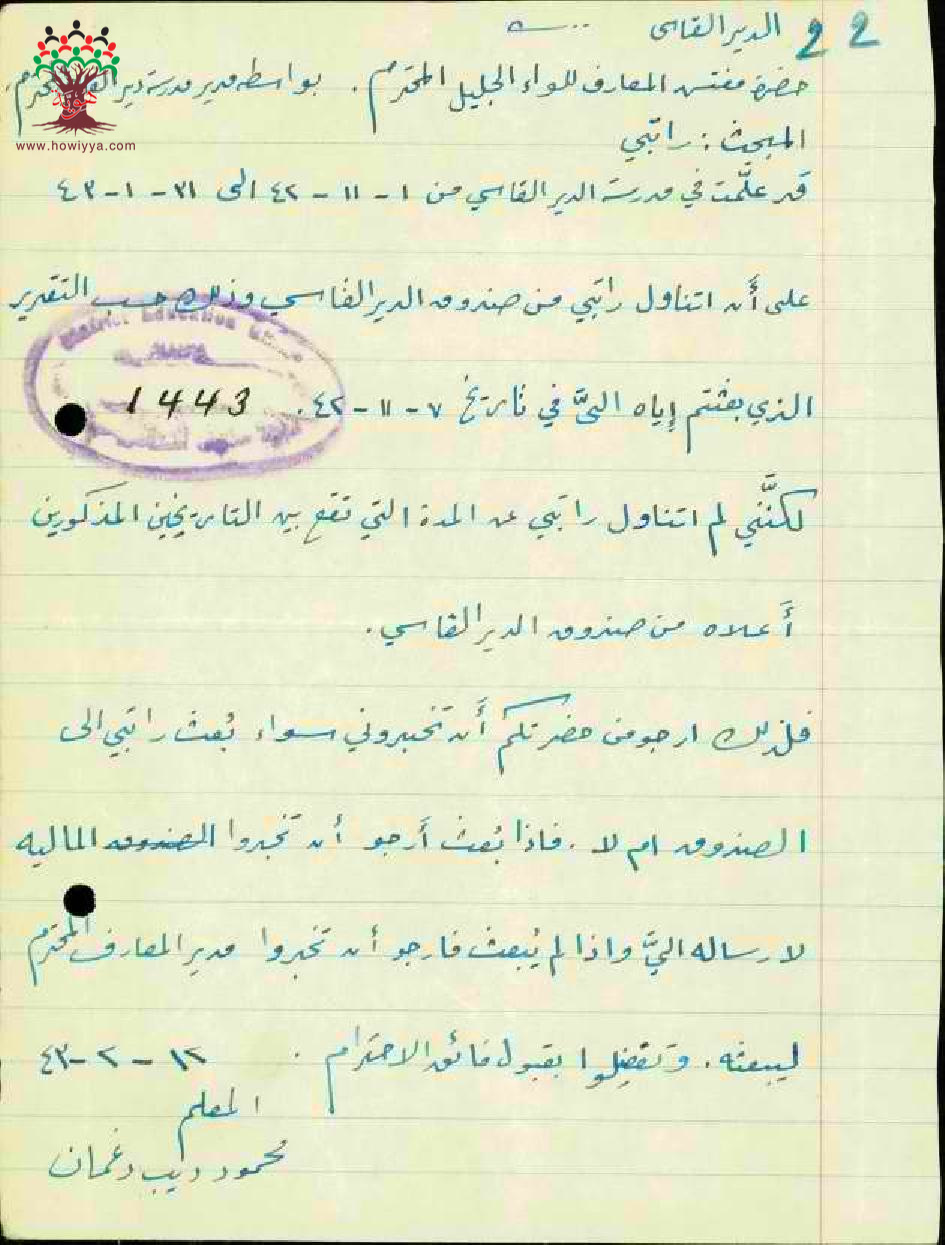 22
الدير القاسي
حضرة مفتش المعارف للواء الجليل المحترم . بواسطة مدير مدرسة دير القاسي المحترم .
www.howiyya.com
المبحث : راتبي
قد علّمت في مدرسة الدير القاسي من ١ - ١١ - ٤٢ الى ٣١ - ١ - ٤٣
على أن اتناول راتبي من صندوق الدير القاسي وذلك حسب التقرير
District Education Office
الذي بعثتم إياه اليَّ في تاريخ ٧ - ١١ - ٤٢ .
1443
لكنَّني لم اتناول راتبي عن المدة التي تقع بين التاريخين المذكورين
أعلاه من صندوق الدير القاسي .
فلذلك ارجو من حضرتكم أن تخبروني سواء بُعث راتبي الى
الصندوق ام لا . فاذا بُعث أرجو أن تخبروا الصندوق الماليه
لارساله اليَّ واذا لم يُبعث فارجو أن تخبروا مدير المعارف المحترم
ليبعثه . وتفضلوا بقبول فائق الاحترام . ١٢ - ٢ - ٤٣
المعلم
محمود ديب دغمان